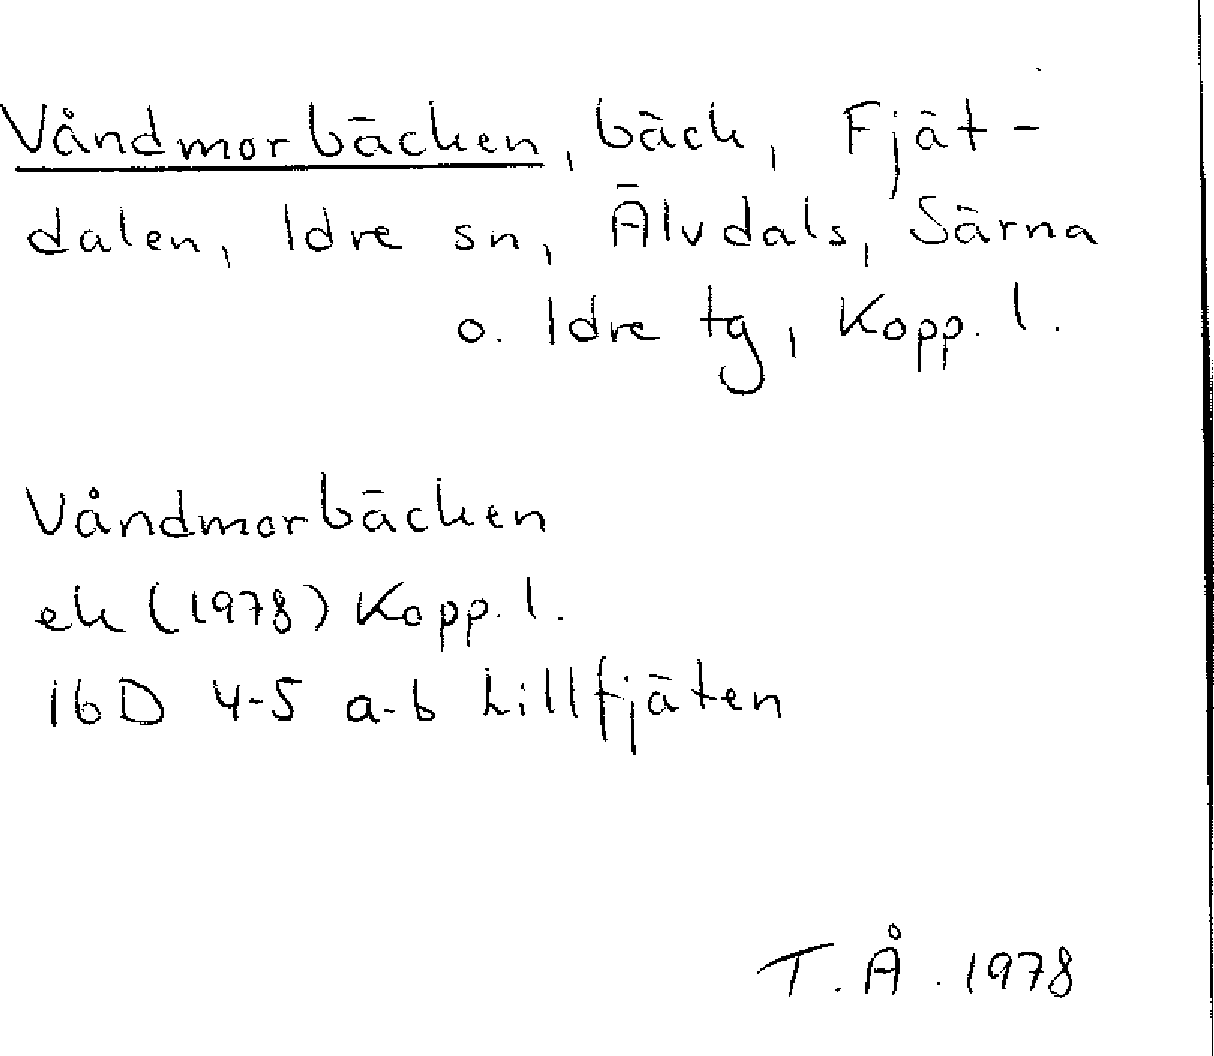 Våndmorbäcken, bäck, Fjät-
dalen, Idre sn, Älvdals, Särna
o. Idre tg, Kopp. l.
Våndmorbäcken
ek (1978) Kopp. l.
16D 4-5 a-b Lillfjäten
T. Å. 1978